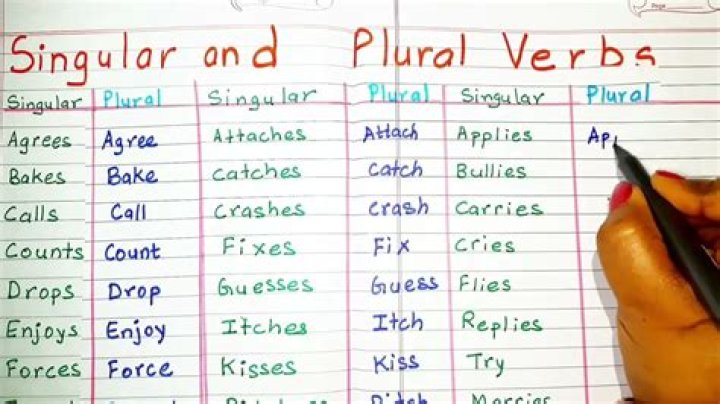 Singular and Plural Verbs
Singular Plural Singular Plural Singular Plural
Agrees Agree Attaches Attach Applies Ap
Bakes Bake Catches Catch Bullies
Calls Call Crashes Crash Carries
Counts Count Fixes Fix Cries
Drops Drop Guesses Guess Flies
Enjoys Enjoy Itches Itch Replies
Forces Force Kisses Kiss Try